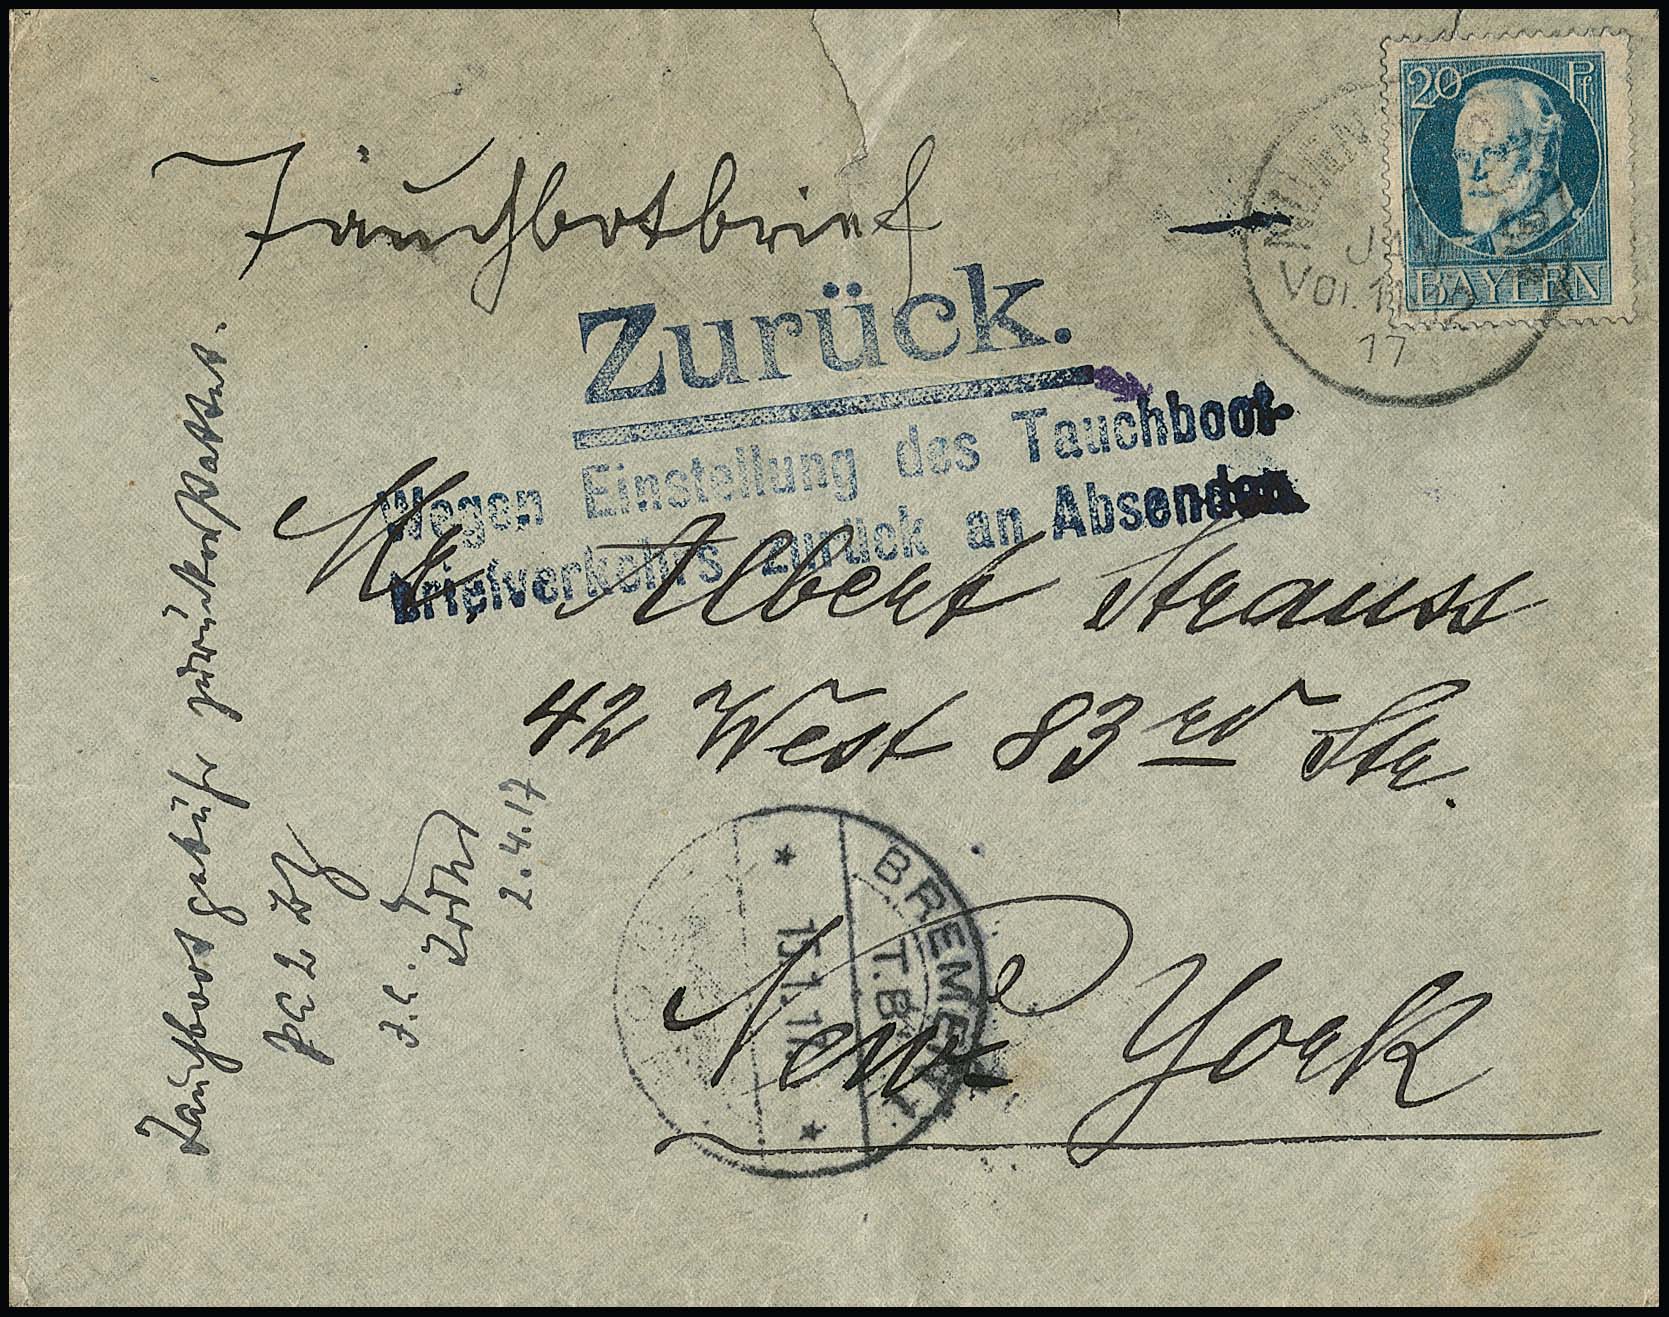 Tauchbotbrief
20 Pf
BAYERN
MÜNCHEN
JAN
VOR. 11-12
17
Zurück.
Wegen Einstellung des Tauchboot-
briefverkehrs zurück an Absender
Mr. Albert Strauss
42 West 83rd Str.
New York
BREMEN 1.
T.B.
* 15.1.17. *
Tauchbootgebühr zurückerstattet.
2.4.17